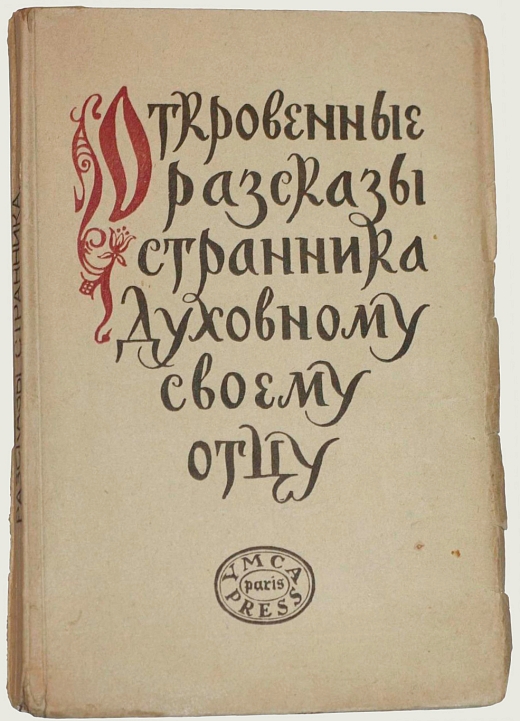 Откровенные
разсказы
странника
духовному
своему
отцу
YMCA
paris
PRESS
РАЗСКАЗЫ СТРАННИКА